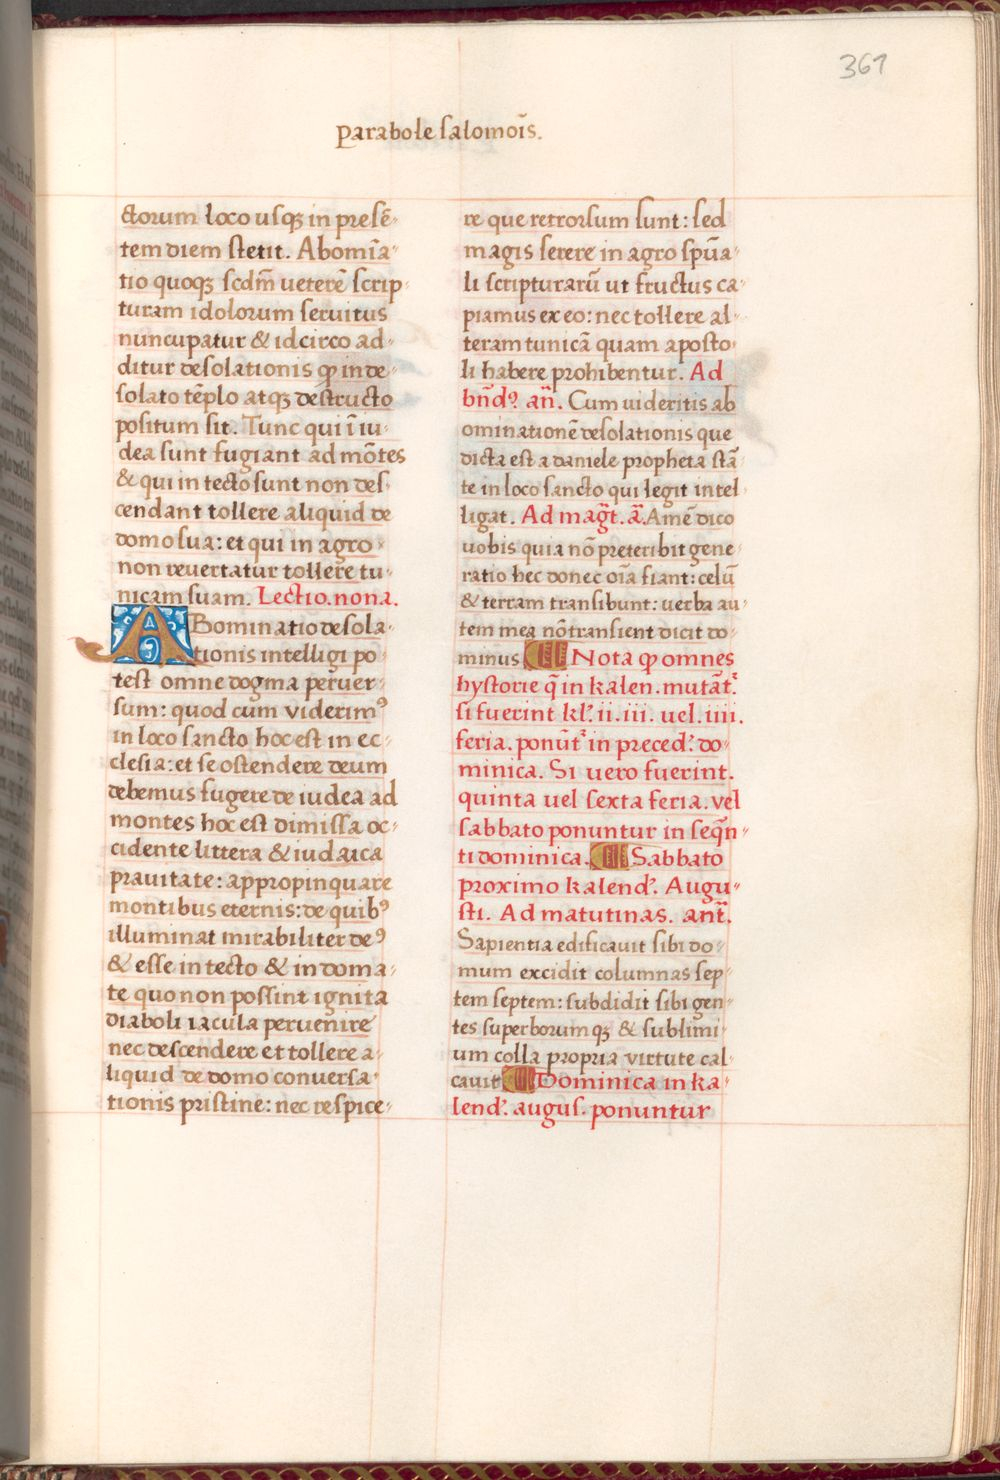 361
Parabole salomoīs.
ctorum loco usqꝫ in presē-
tem diem stetit. Abomīa-
tio quoqꝫ scdm̄ ueterē scrip-
turam idolorum seruitus
nuncupatur & idcirco ad-
ditur desolationis ꝙ in de-
solato tēplo atqꝫ destructo
positum sit. Tunc qui ī iu-
dea sunt fugiant ad mōtes
& qui in tecto sunt non des-
cendant tollere aliquid de
domo sua: et qui in agro
non revertatur tollere tu-
nicam suam. Lectio. nona.
ABominatio desola-
tionis intelligi po-
test omne dogma perver-
sum: quod cum viderimꝰ
in loco sancto hoc est in ec-
clesia: et se ostendere deum
debemus fugere de iudea ad
montes hoc est dimissa oc-
cidente littera & iudaica
pravitate: appropinquare
montibus eternis: de quibꝰ
illuminat mirabiliter deꝰ
& esse in tecto & in doma-
te quo non possint ignita
diaboli iacula pervenire
nec descendere et tollere a-
liquid de domo conversa-
tionis pristine: nec respice-
re que retrorsum sunt: sed
magis serere in agro spūa-
li scripturarū ut fructus ca-
piamus ex eo: nec tollere al-
teram tunicā quam aposto-
li habere prohibentur. Ad
bn̄dꝰ. an̄. Cum uideritis ab
ominationē desolationis que
dicta est a daniele propheta stā-
te in loco sancto qui legit intel-
ligat. Ad maḡt. ā. Amē dico
uobis quia nō preteribit gene-
ratio hec donec oīa fiant: celū
& terram transibunt: uerba au-
tem mea nō transient dicit do-
minus Nota ꝙ omnes
hystorie q̄ in kalen. mutāt᷑
si fuerint kl᷑. ii. iii. uel. iiii.
feria. ponūt᷑ in preced᷑. do-
minica. Si uero fuerint.
quinta uel sexta feria. vel
sabbato ponuntur in seq̄n-
ti dominica. Sabbato
proximo kalend᷑. Augu-
sti. Ad matutinas. ant̄.
Sapientia edificavit sibi do-
mum excidit columnas sep-
tem septem: subdidit sibi gen-
tes superborumqꝫ & sublimi-
um colla propria virtute cal-
cavit Dominica in ka-
lend᷑. augus. ponuntur